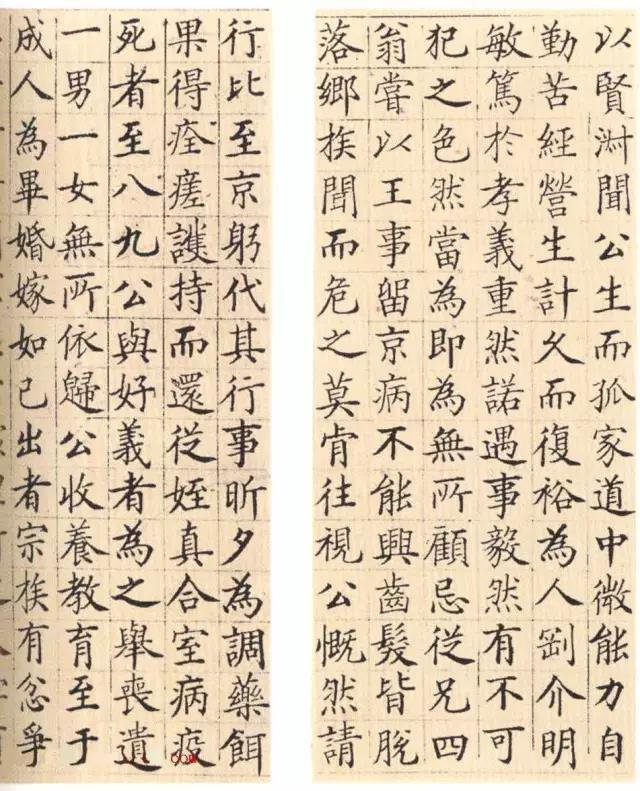 以賢淑聞公生而孤家道中微能力自
勤苦經營生計久而復裕為人剛介明
敏篤於孝義重然諾遇事毅然有不可
犯之色然當為即為無所顧忌從兄四
翁嘗以王事留京病不能興齒髮皆脫
落鄉族聞而危之莫肯往視公慨然請
行比至京躬代其行事昕夕為調藥餌
果得痊瘥護持而還從姪真合室病疫
死者至八九公與好義者為之舉喪遺
一男一女無所依歸公收養教育至于
成人為畢婚嫁如己出者宗族有忿爭
com